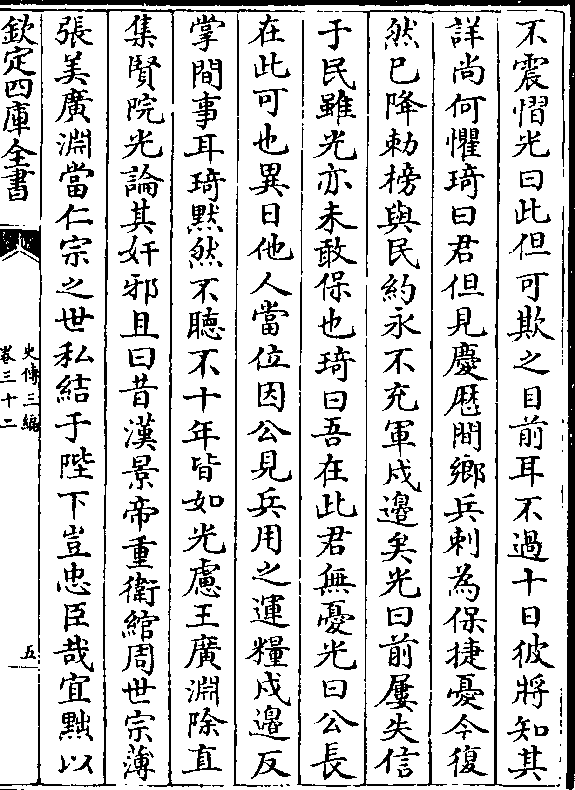 不震慴光曰此但可欺之目前耳不過十日彼將知其
詳尚何懼琦曰君但見慶厯間鄉兵刺為保捷憂今復
然已降勅榜與民約永不充軍戍邊矣光曰前屢失信
于民雖光亦未敢保也琦曰吾在此君無憂光曰公長
在此可也異日他人當位因公見兵用之運糧戍邊反
掌間事耳琦黙然不聽不十年皆如光慮王廣淵除直
集賢院光論其奸邪且曰昔漢景帝重衛綰周世宗薄
張美廣淵當仁宗之世私結于陛下豈忠臣哉宜黜以
欽定四庫全書
史傳三編
卷三十二
五